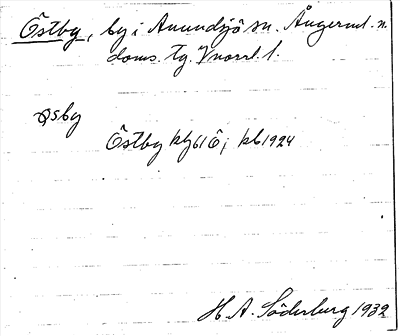 Östby, by i Anundsjö sn. Ångerml. n.
doms. tg. Vnorrl. l.
Östby kby61Ö; kb1924
H. A. Söderburg 1932